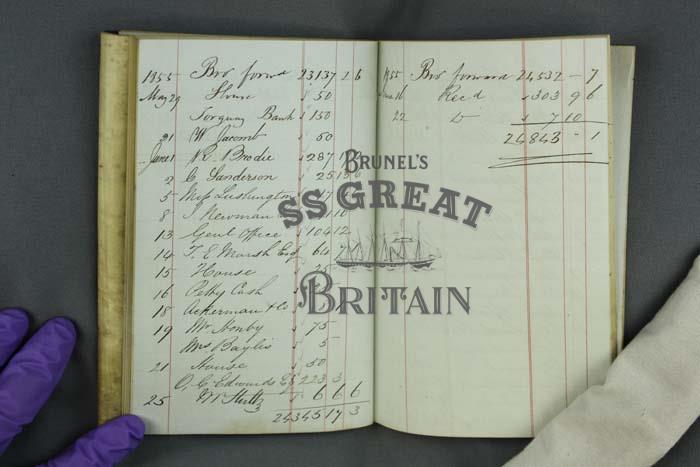 1855 Bro forwd 23137 2 6
May 29 House 50
Torquay Bank 150
31 W Jacomb 50
June 1 Brodie 287
2 C Sanderson 25 13 6
5 Miss Lushington
8 J Newman
13 Genl Office 104 12
14 T. E. Marsh Esq 64
15 House
16 Petty Cash
18 Ackerman & Co
19 Mr Hornby 75 -
Mrs Baylis 5 -
21 House 50
O. C. Edwards Esq 223 3
25 6 6 6
24345 17 3
1855 Bro forward 24,532 - 7
June 16 Recd 303 9 6
22 Do 7 10
24843 - 1
BRUNEL'S
SS GREAT
BRITAIN